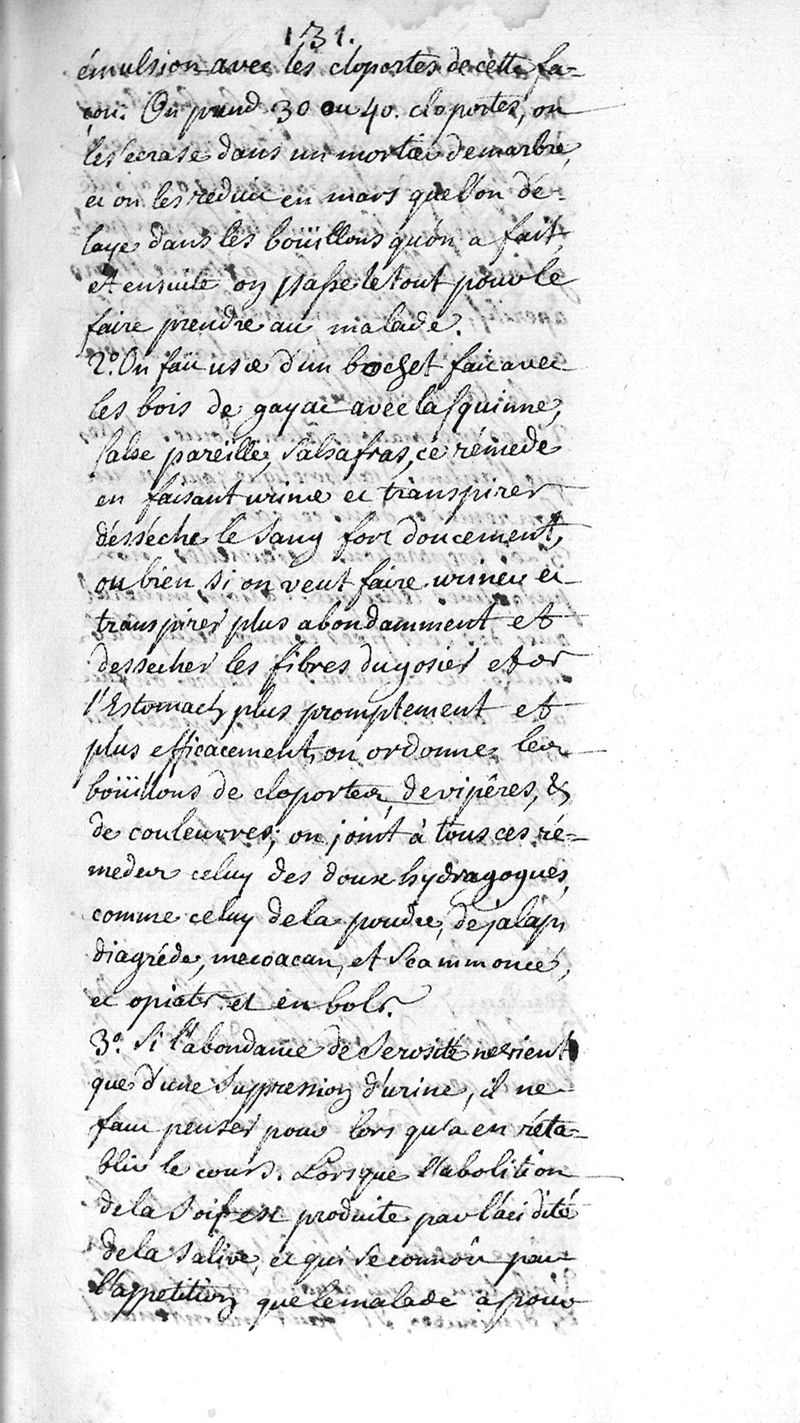 131.
émulsion avec les cloportes de cette fa-
çon: On prend 30 ou 40. cloportes, on
les écrase dans un mortier de marbre,
et on les réduit en mars que l'on dé-
laye dans les boüillons qu'on a fait,
et ensuite on passe le tout pour le
faire prendre au malade.
2º. On fait use d'un bochet fait avec
les bois de gayac avec la squinne,
salse pareille, salsafras, ce rémede
en faisant uriner et transpirer
désséche le sang fort doucement,
ou bien si on veut faire uriner et
transpirer plus abondamment et
dessecher les fibres du gosier et de
l'Estomach plus promptement et
plus efficacement, on ordonne les
boüillons de cloportes, de vipêres, &
de couleuvres; on joint à tous ces ré-
medes celuy des doux hydragogues,
comme celuy de la poudre, de jalap,
diagréde, mecoacan, et scammonée,
et opiats et en bols.
3º. Si l'abondance de serosité ne vient
que d'une suppression d'urine, il ne
faut penser pour lors qu'a en réta-
blir le cours. Lorsque l'abolition
de la soif est produite par l'acidité
de la salive, et qui se connôit par
l'appetition que le malade a pour